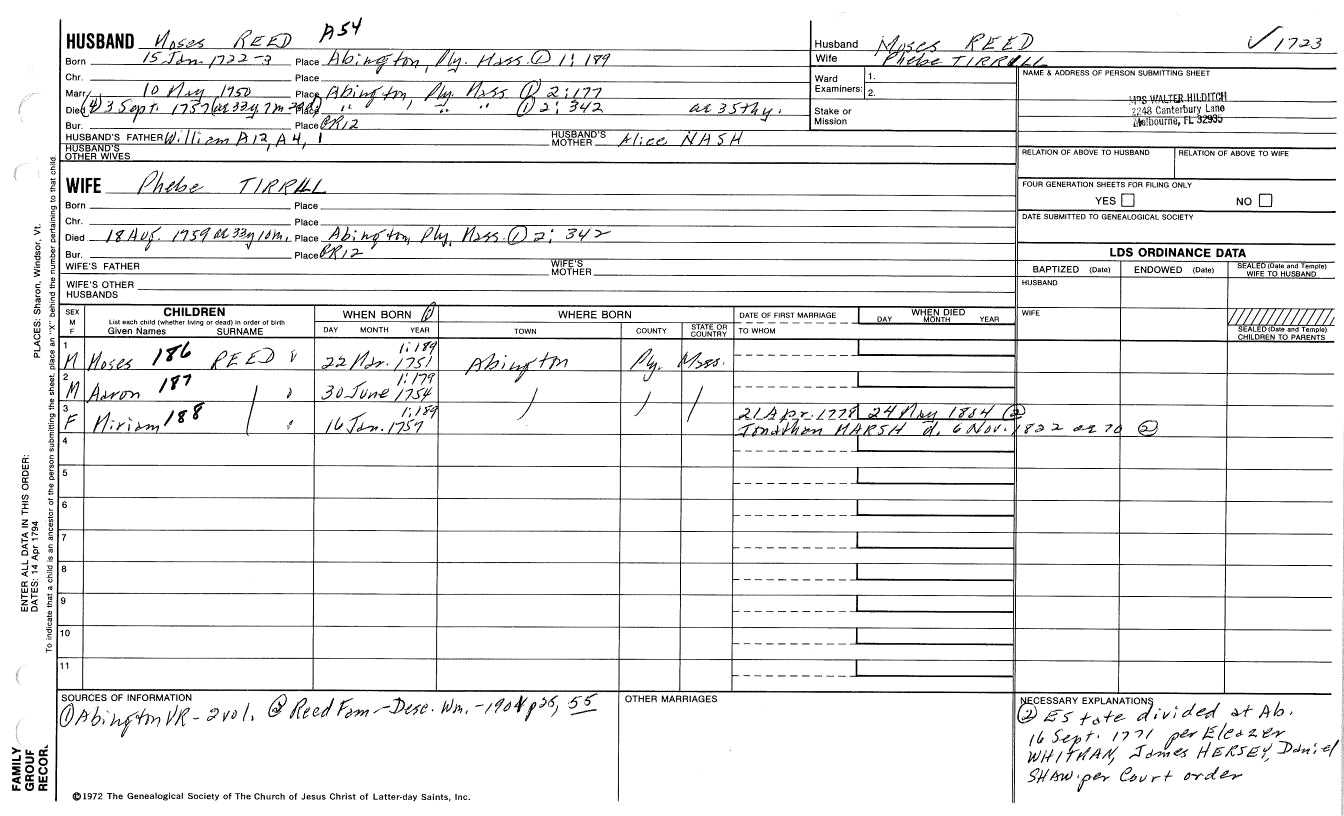 HUSBAND Moses REED A54
Born 15 Jan. 1722-3 Place Abington, Ply. Mass. ① 1:189
Chr. Place
Marr. 10 May 1750 Place Abington, Ply Mass ① 2:177
Died 3 Sept. 1757 Place " , " " ① 2:342 ae 35thy.
Bur. Place PR12
HUSBAND'S FATHER William A12, A4, 1 HUSBAND'S MOTHER Alice NASH
HUSBAND'S OTHER WIVES
Husband Moses REED √ 1723
Wife Phebe TIRRILL
Ward Examiners: 1. 2.
Stake or Mission
NAME & ADDRESS OF PERSON SUBMITTING SHEET
MRS WALTER HILDITCH
2248 Canterbury Lane
Melbourne, FL 32935
RELATION OF ABOVE TO HUSBAND RELATION OF ABOVE TO WIFE
FOUR GENERATION SHEETS FOR FILING ONLY
YES NO
DATE SUBMITTED TO GENEALOGICAL SOCIETY
WIFE Phebe TIRRILL
Born Place
Chr. Place
Died 18 Aug. 1759 ae 33y 10m. Place Abington, Ply, Mass. ① 2:342
Bur. Place PR12
WIFE'S FATHER WIFE'S MOTHER
WIFE'S OTHER HUSBANDS
LDS ORDINANCE DATA
BAPTIZED (Date) ENDOWED (Date) SEALED (Date and Temple) WIFE TO HUSBAND
HUSBAND
WIFE
SEALED (Date and Temple) CHILDREN TO PARENTS
SEX M F CHILDREN WHEN BORN ① WHERE BORN DATE OF FIRST MARRIAGE WHEN DIED
List each child (whether living or dead) in order of birth
Given Names SURNAME DAY MONTH YEAR TOWN COUNTY STATE OR COUNTRY TO WHOM DAY MONTH YEAR
1 1:189
M Moses 186 REED 22 Mar. 1751 Abington Ply. Mass.
2 1:179
M Aaron 187 30 June 1754
3 1:189
F Miriam 188 16 Jan. 1757 21 Apr. 1778 24 May 1854 ②
Jonathan MARSH d. 6 Nov. 1822 ae 70 ②
4
5
6
7
8
9
10
11
SOURCES OF INFORMATION
① Abington VR - 2 vol. ② Reed Fam - Desc. Wm. - 1901 p 25, 55
OTHER MARRIAGES
NECESSARY EXPLANATIONS
② Estate divided at Ab.
16 Sept. 1771 per Eleazer
WHITMAN, James HERSEY, Daniel
SHAW per Court order
©1972 The Genealogical Society of The Church of Jesus Christ of Latter-day Saints, Inc.
PLACES: Sharon, Windsor, Vt.
ENTER ALL DATA IN THIS ORDER:
DATES: 14 Apr 1794
To indicate that a child is an ancestor of the person submitting the sheet, place an "X" behind the number pertaining to that child.
FAMILY
GROUP
RECOR.